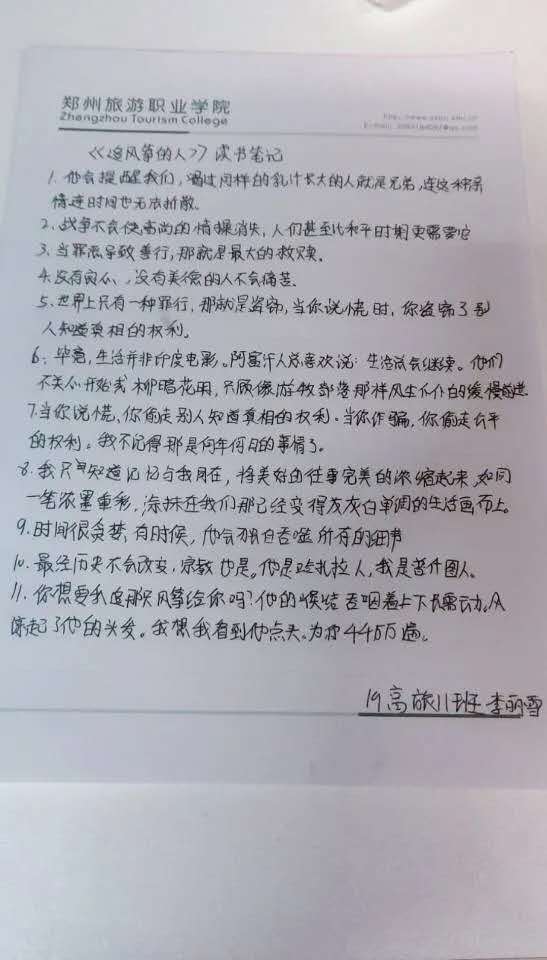 郑州旅游职业学院
Zhengzhou Tourism College
《追风筝的人》读书笔记
1. 他会提醒我们，喝过同样的乳汁长大的人就是兄弟，连这种亲
情连时间也无法折散。
2. 战争不会使高尚的情操消失，人们甚至比和平时期更需要它
3. 当罪恶导致善行，那就是最大的救赎。
4. 没有良心、没有美德的人不会痛苦。
5. 世界上只有一种罪行，那就是盗窃，当你说慌时，你盗窃了别
人知道真相的权利。
6. 毕竟，生活并非印度电影。阿富汗人总喜欢说：生活总会继续。他们
不关心开始或柳暗花明，只顾像游牧部落那样风尘仆仆的缓慢前进
7. 当你说慌，你偷走别人知道真相的权利。当你作骗，你偷走公平
的权利。我不记得那是何年何月的事情了。
8. 我只知道记忆与我同在，将美好的往事完美的浓缩起来，如同
一笔浓墨重彩，涂抹在我们那已经变得灰灰白单调的生活画面上。
9. 时间很贪婪，有时候，他会独自吞噬所有的细节
10. 最终历史不会改变，宗教也是。他是哈扎拉人，我是普什图人。
11. 你想要我追那只风筝给你吗？他的喉结吞咽着上下蠕动。风
掠起了他的头发。我想我看到他点头。为你千千万万遍。
19高旅11班 李丽雪